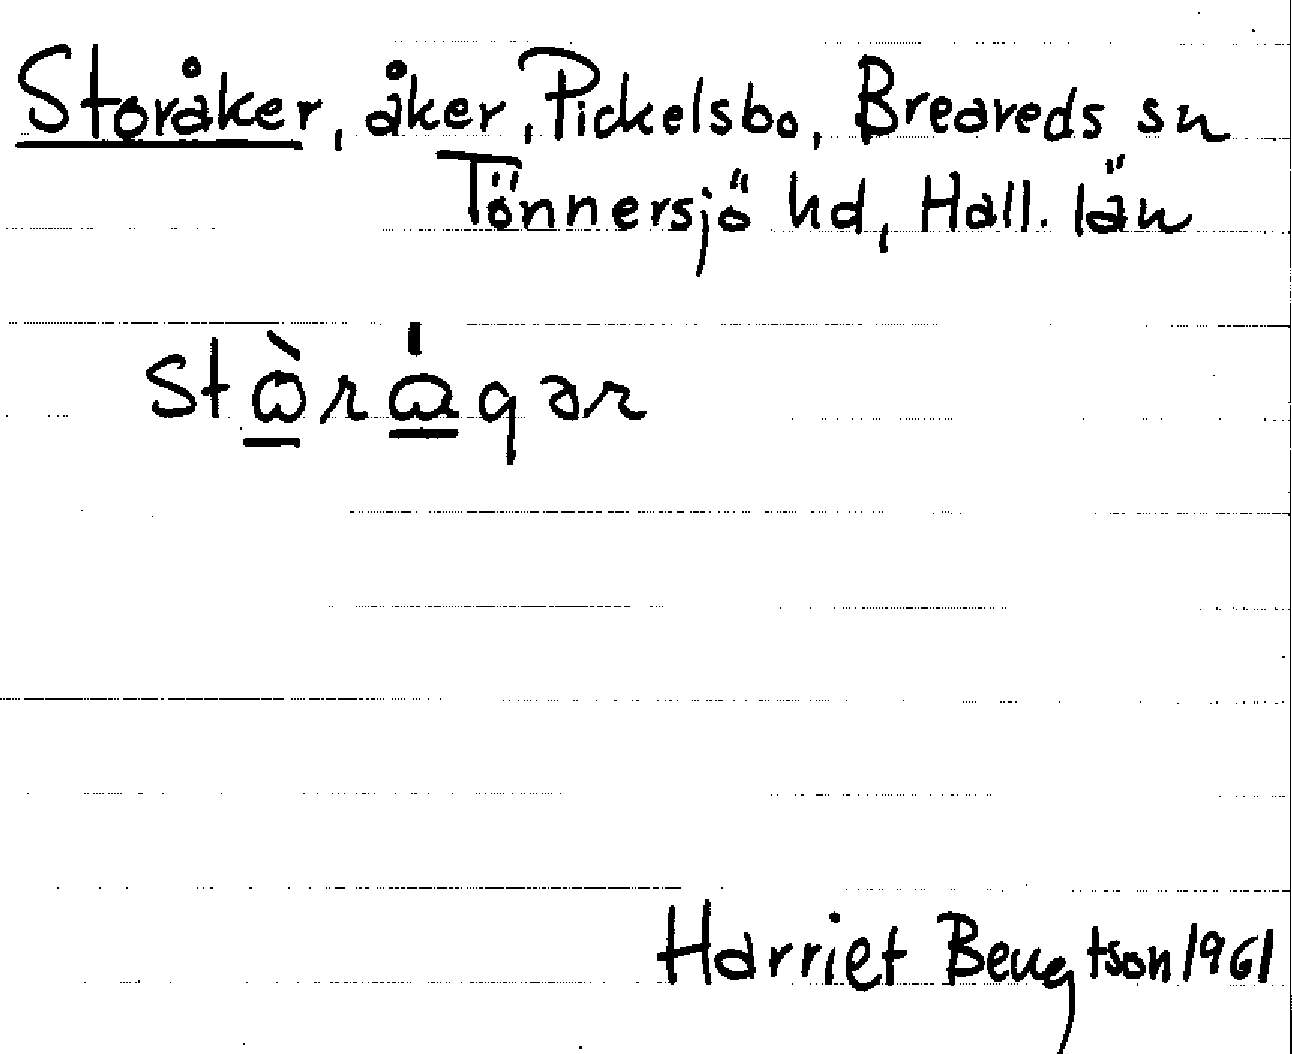 Storåker, åker, Pickelsbo, Breareds sn
Tönnersjö hd, Hall. län
stὼ̲rώ̲qər
Harriet Bengtson 1961